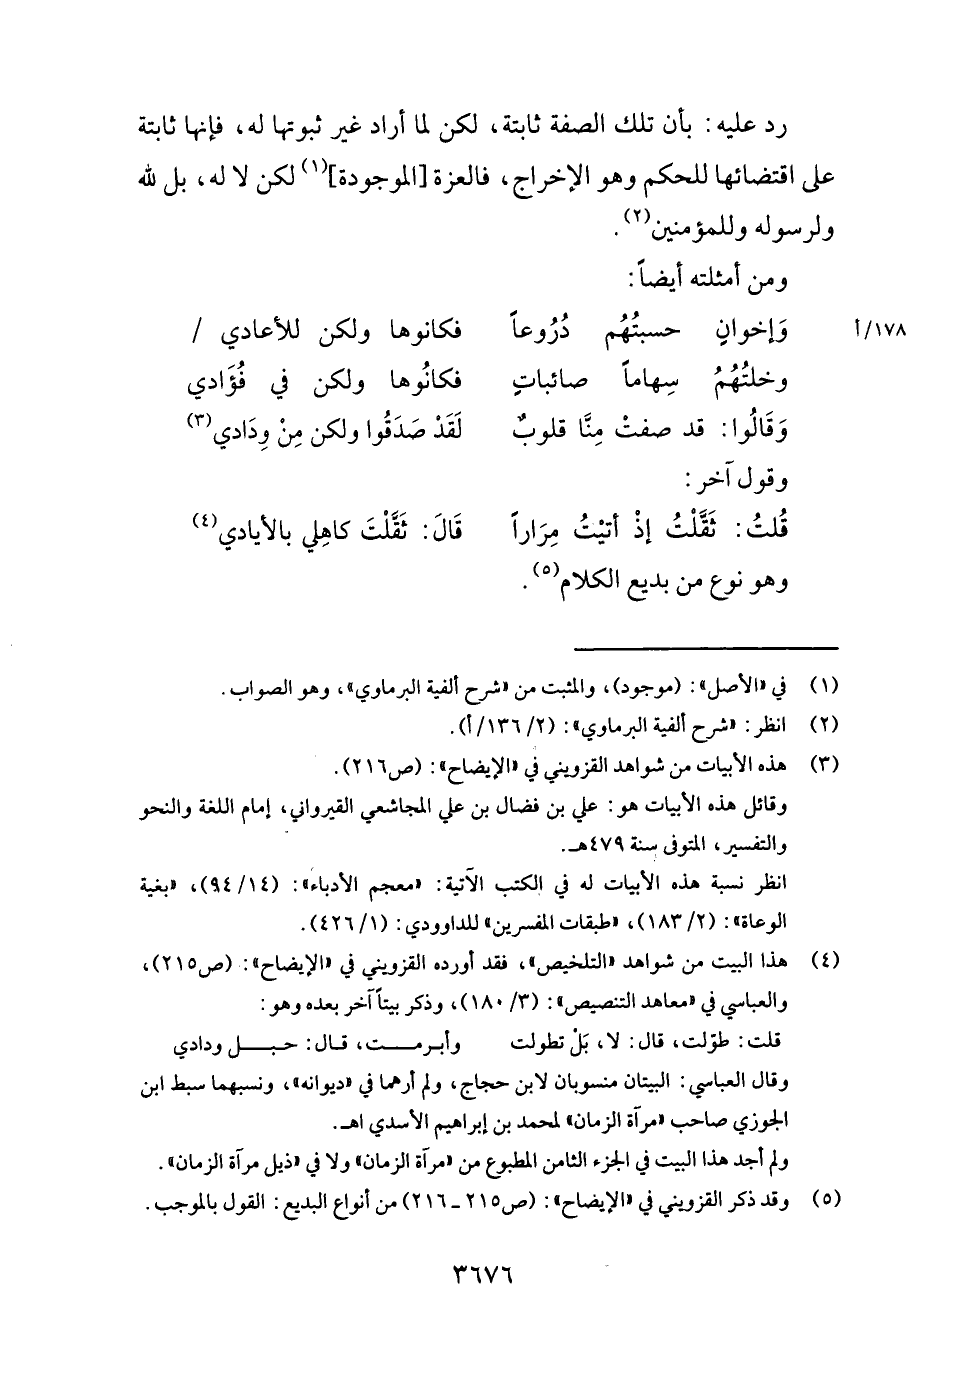 رد عليه: بأن تلك الصفة ثابتة، لكن لما أراد غير ثبوتها له، فإنها ثابتة
على اقتضائها للحكم وهو الإخراج، فالعزة [الموجودة](١) لكن لا له، بل لله
ولرسوله وللمؤمنين(٢).
ومن أمثلته أيضاً:
وَإخوانٍ حسبتُهُم دُرُوعاً فكانوها ولكن للأعادي / ١٧٨/أ
وخلتُهُمُ سِهاماً صائباتٍ فكانُوها ولكن في فُؤَادي
وَقَالُوا: قد صفتْ مِنَّا قلوبٌ لَقَدْ صَدَقُوا ولكن مِنْ وِدَادي(٣)
وقول آخر:
قُلتُ: ثَقَّلْتُ إذْ أتيْتُ مِرَاراً قَالَ: ثَقَّلْتَ كاهِلي بالأيادي(٤)
وهو نوع من بديع الكلام(٥).
(١) في «الأصل»: (موجود)، والمثبت من «شرح ألفية البرماوي»، وهو الصواب.
(٢) انظر: «شرح ألفية البرماوي»: (٢/ ١٣٦/أ).
(٣) هذه الأبيات من شواهد القزويني في «الإيضاح»: (ص٢١٦).
وقائل هذه الأبيات هو: علي بن فضال بن علي المجاشعي القيرواني، إمام اللغة والنحو
والتفسير، المتوفى سنة ٤٧٩هـ.
انظر نسبة هذه الأبيات له في الكتب الآتية: «معجم الأدباء»: (١٤/ ٩٤)، «بغية
الوعاة»: (٢/ ١٨٣)، «طبقات المفسرين» للداوودي: (١/ ٤٢٦).
(٤) هذا البيت من شواهد «التلخيص»، فقد أورده القزويني في «الإيضاح»: (ص٢١٥)،
والعباسي في «معاهد التنصيص»: (٣/ ١٨٠)، وذكر بيتاً آخر بعده وهو:
قلت: طوّلت، قال: لا، بَلْ تطولت وأبرمــــت، قـال: حبـــل ودادي
وقال العباسي: البيتان منسوبان لابن حجاج، ولم أرهما في «ديوانه»، ونسبهما سبط ابن
الجوزي صاحب «مرآة الزمان» لمحمد بن إبراهيم الأسدي اهـ.
ولم أجد هذا البيت في الجزء الثامن المطبوع من «مرآة الزمان» ولا في «ذيل مرآة الزمان».
(٥) وقد ذكر القزويني في «الإيضاح»: (ص٢١٥ـ٢١٦) من أنواع البديع: القول بالموجب.
٣٦٧٦